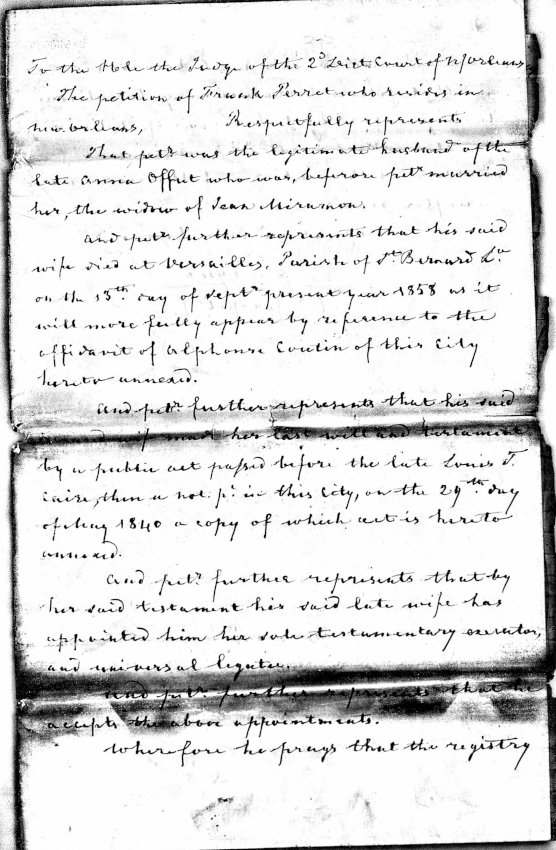 To the Hble the Judge of the 2d Dict Court of N/Orleans.
The petition of Frank Perret who resides in
new orleans, Respectfully represents
That petr was the legitimate husband of the
late Anna Offut who was, before petr married
her, the widow of Jean Miramon.
And petr further represents that his said
wife died at Versailles, Parish of St Bernard La
on the 13th day of Septr present year 1858 as it
will more fully appear by reference to the
affidavit of Alphonse Coutin of this City
hereto annexed.
And petr further represents that his said
wife made her last will and testament
by a public act passed before the late Louis T.
Caire, then a not. p. in this City, on the 29th day
of May 1840 a copy of which act is hereto
annexed.
And petr further represents that by
her said testament his said late wife has
appointed him her sole testamentary executor,
and universal legatee.
And petr further represents that he
accepts the above appointments.
Wherefore he prays that the registry